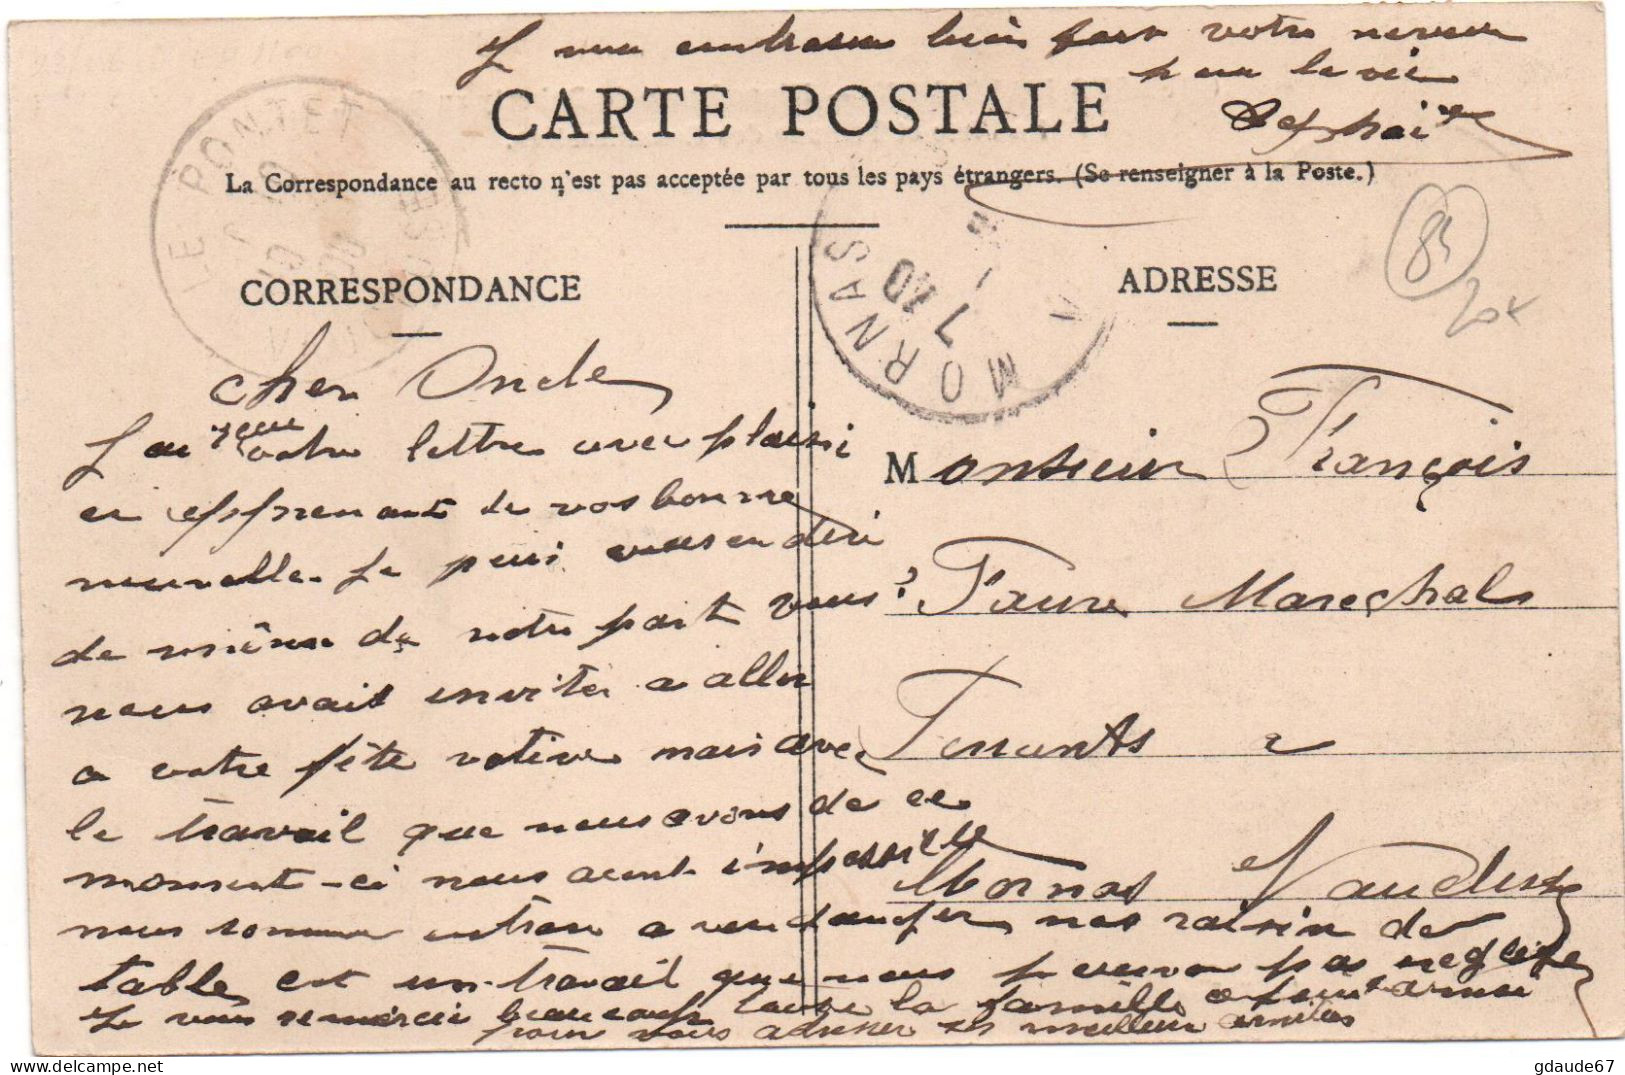 Je vous embrasse bien fort votre neveu
pour la vie
CARTE POSTALE
La Correspondance au recto n'est pas acceptée par tous les pays étrangers. (Se renseigner à la Poste.)
LE PONTET
MORNAS
7 - 10
85
20x
CORRESPONDANCE
ADRESSE
cher Oncle
J'ai reçu votre lettre avec plaisir
en apprenant de vos bonne
nouvelle. Je puis vous en dire
de même de notre part vous
nous avait inviter a aller
a votre fête votive mais avec
le travail que nous avons de ce
moment-ci nous avent impossible
nous somme entrain a vendanger nos raisin de
table, est un travail que nous pouvon pas neglige
Je vous remercie beaucoup toute la famille
pour vous adresser ses meilleur amitiés
Monsieur François
Faure Marechal
Ferrants a
Mornas Vaucluse
gdaude67